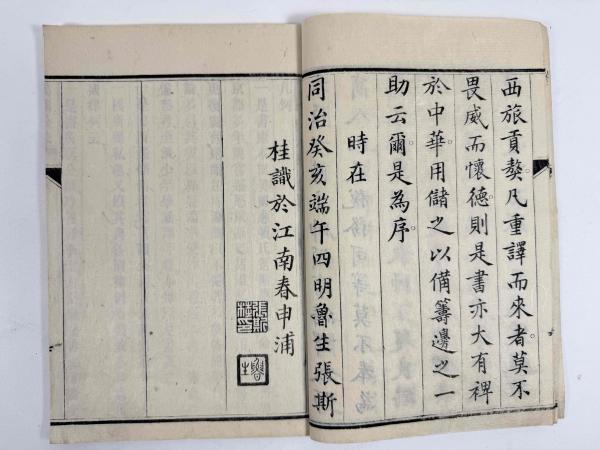 西旅貢獒凡重譯而來者莫不
畏威而懷德則是書亦大有裨
於中華用儲之以備籌邊之一
助云爾是為序
時在
同治癸亥端午四明魯生張斯
桂識於江南春申浦
張斯
桂印
魯
生